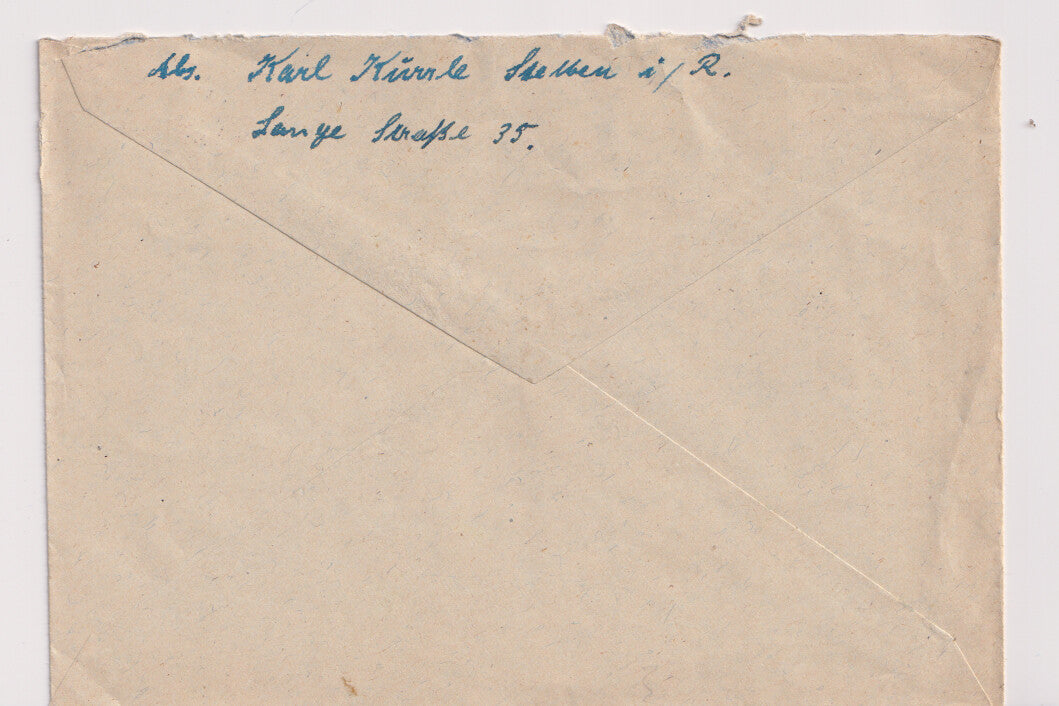 Abs. Karl Kürrle Stetten i/R.
Lange Straße 35.